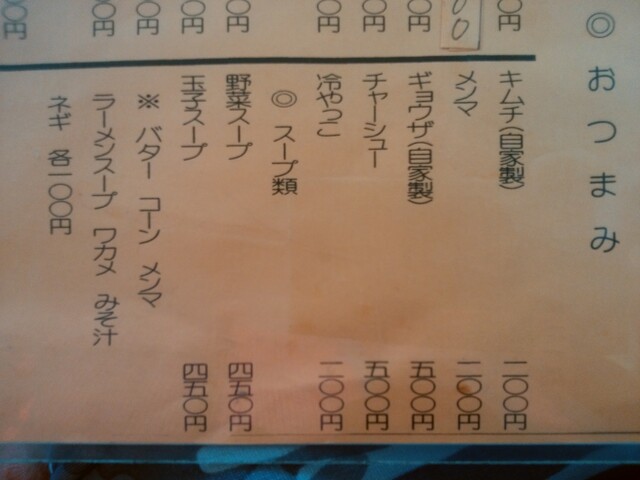 ◎おつまみ
キムチ(自家製) 二〇〇円
メンマ 二〇〇円
ギョウザ(自家製) 五〇〇円
チャーシュー 五〇〇円
冷やっこ 二〇〇円
◎ スープ類
野菜スープ 四五〇円
玉子スープ 四五〇円
※ バター コーン メンマ
ラーメンスープ ワカメ みそ汁
ネギ 各一〇〇円